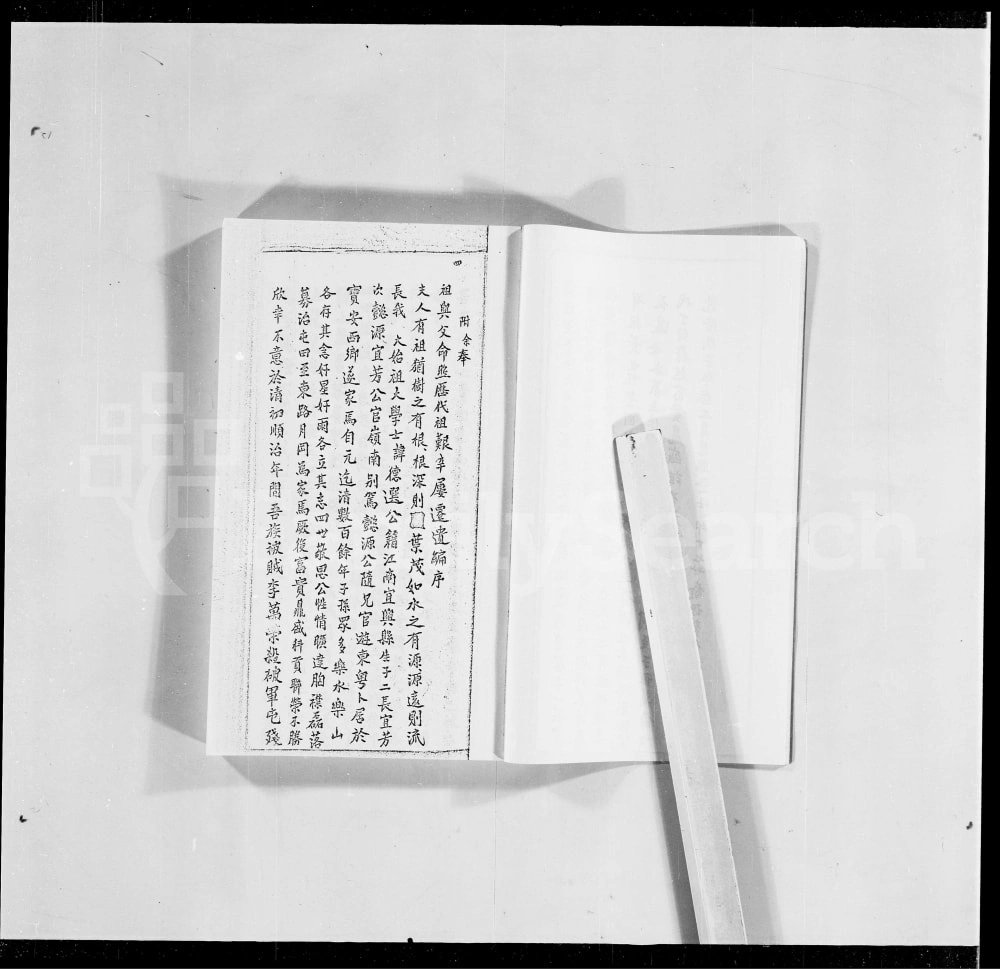 四
附余奉
祖與父命照歷代祖艱辛屢遷遺編序
夫人有祖猶樹之有根根深則葉茂如水之有源源遠則流
長我 大始祖大學士諱德選公籍江南宜興縣生子二長宜芳
次懿源宜芳公官嶺南別駕懿源公隨兄官遊東粵卜居於
寶安西鄉遂家焉自元迄清數百餘年子孫眾多樂水樂山
各存其念好星好雨各立其志四世敬思公性情曠達胸襟磊落
募治屯田至東路月岡為家焉厥後富貴鼎盛科貢聯榮不勝
欣幸不意於清初順治年間吾族被賊李萬宗殺破軍屯殘